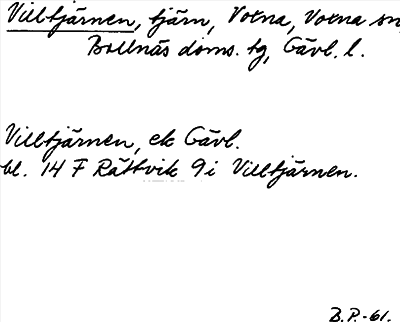 Villtjärnen, tjärn, Voxna, Voxna sn,
Bollnäs doms. tg, Gävl. l.
Villtjärnen, ek Gävl.
bl. 14 F Rättvik 9i Villtjärnen.
B.P.-61.